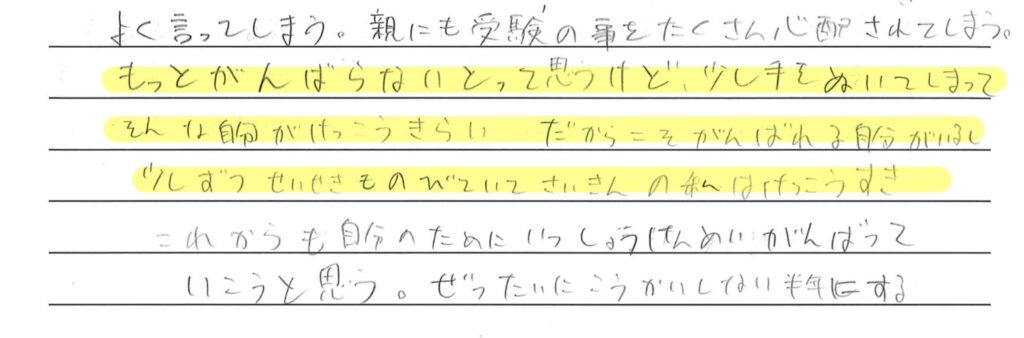 よく言ってしまう。親にも受験の事をたくさん心配されてしまう。
もっとがんばらないとって思うけど、少し手をぬいてしまって
そんな自分がけっこうきらい だからこそがんばれる自分がいるし
少しずつせいせきものびていてさいきんの私はけっこうすき
これからも自分のためにいっしょうけんめいがんばって
いこうと思う。ぜったいにこうかいしない半年にする